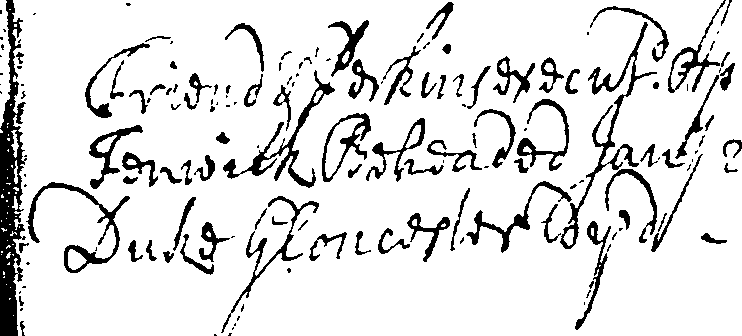 Friend & Perkins execut.d Ap
Fenwick Beheaded Jany 2
Duke Gloucester Dyed -